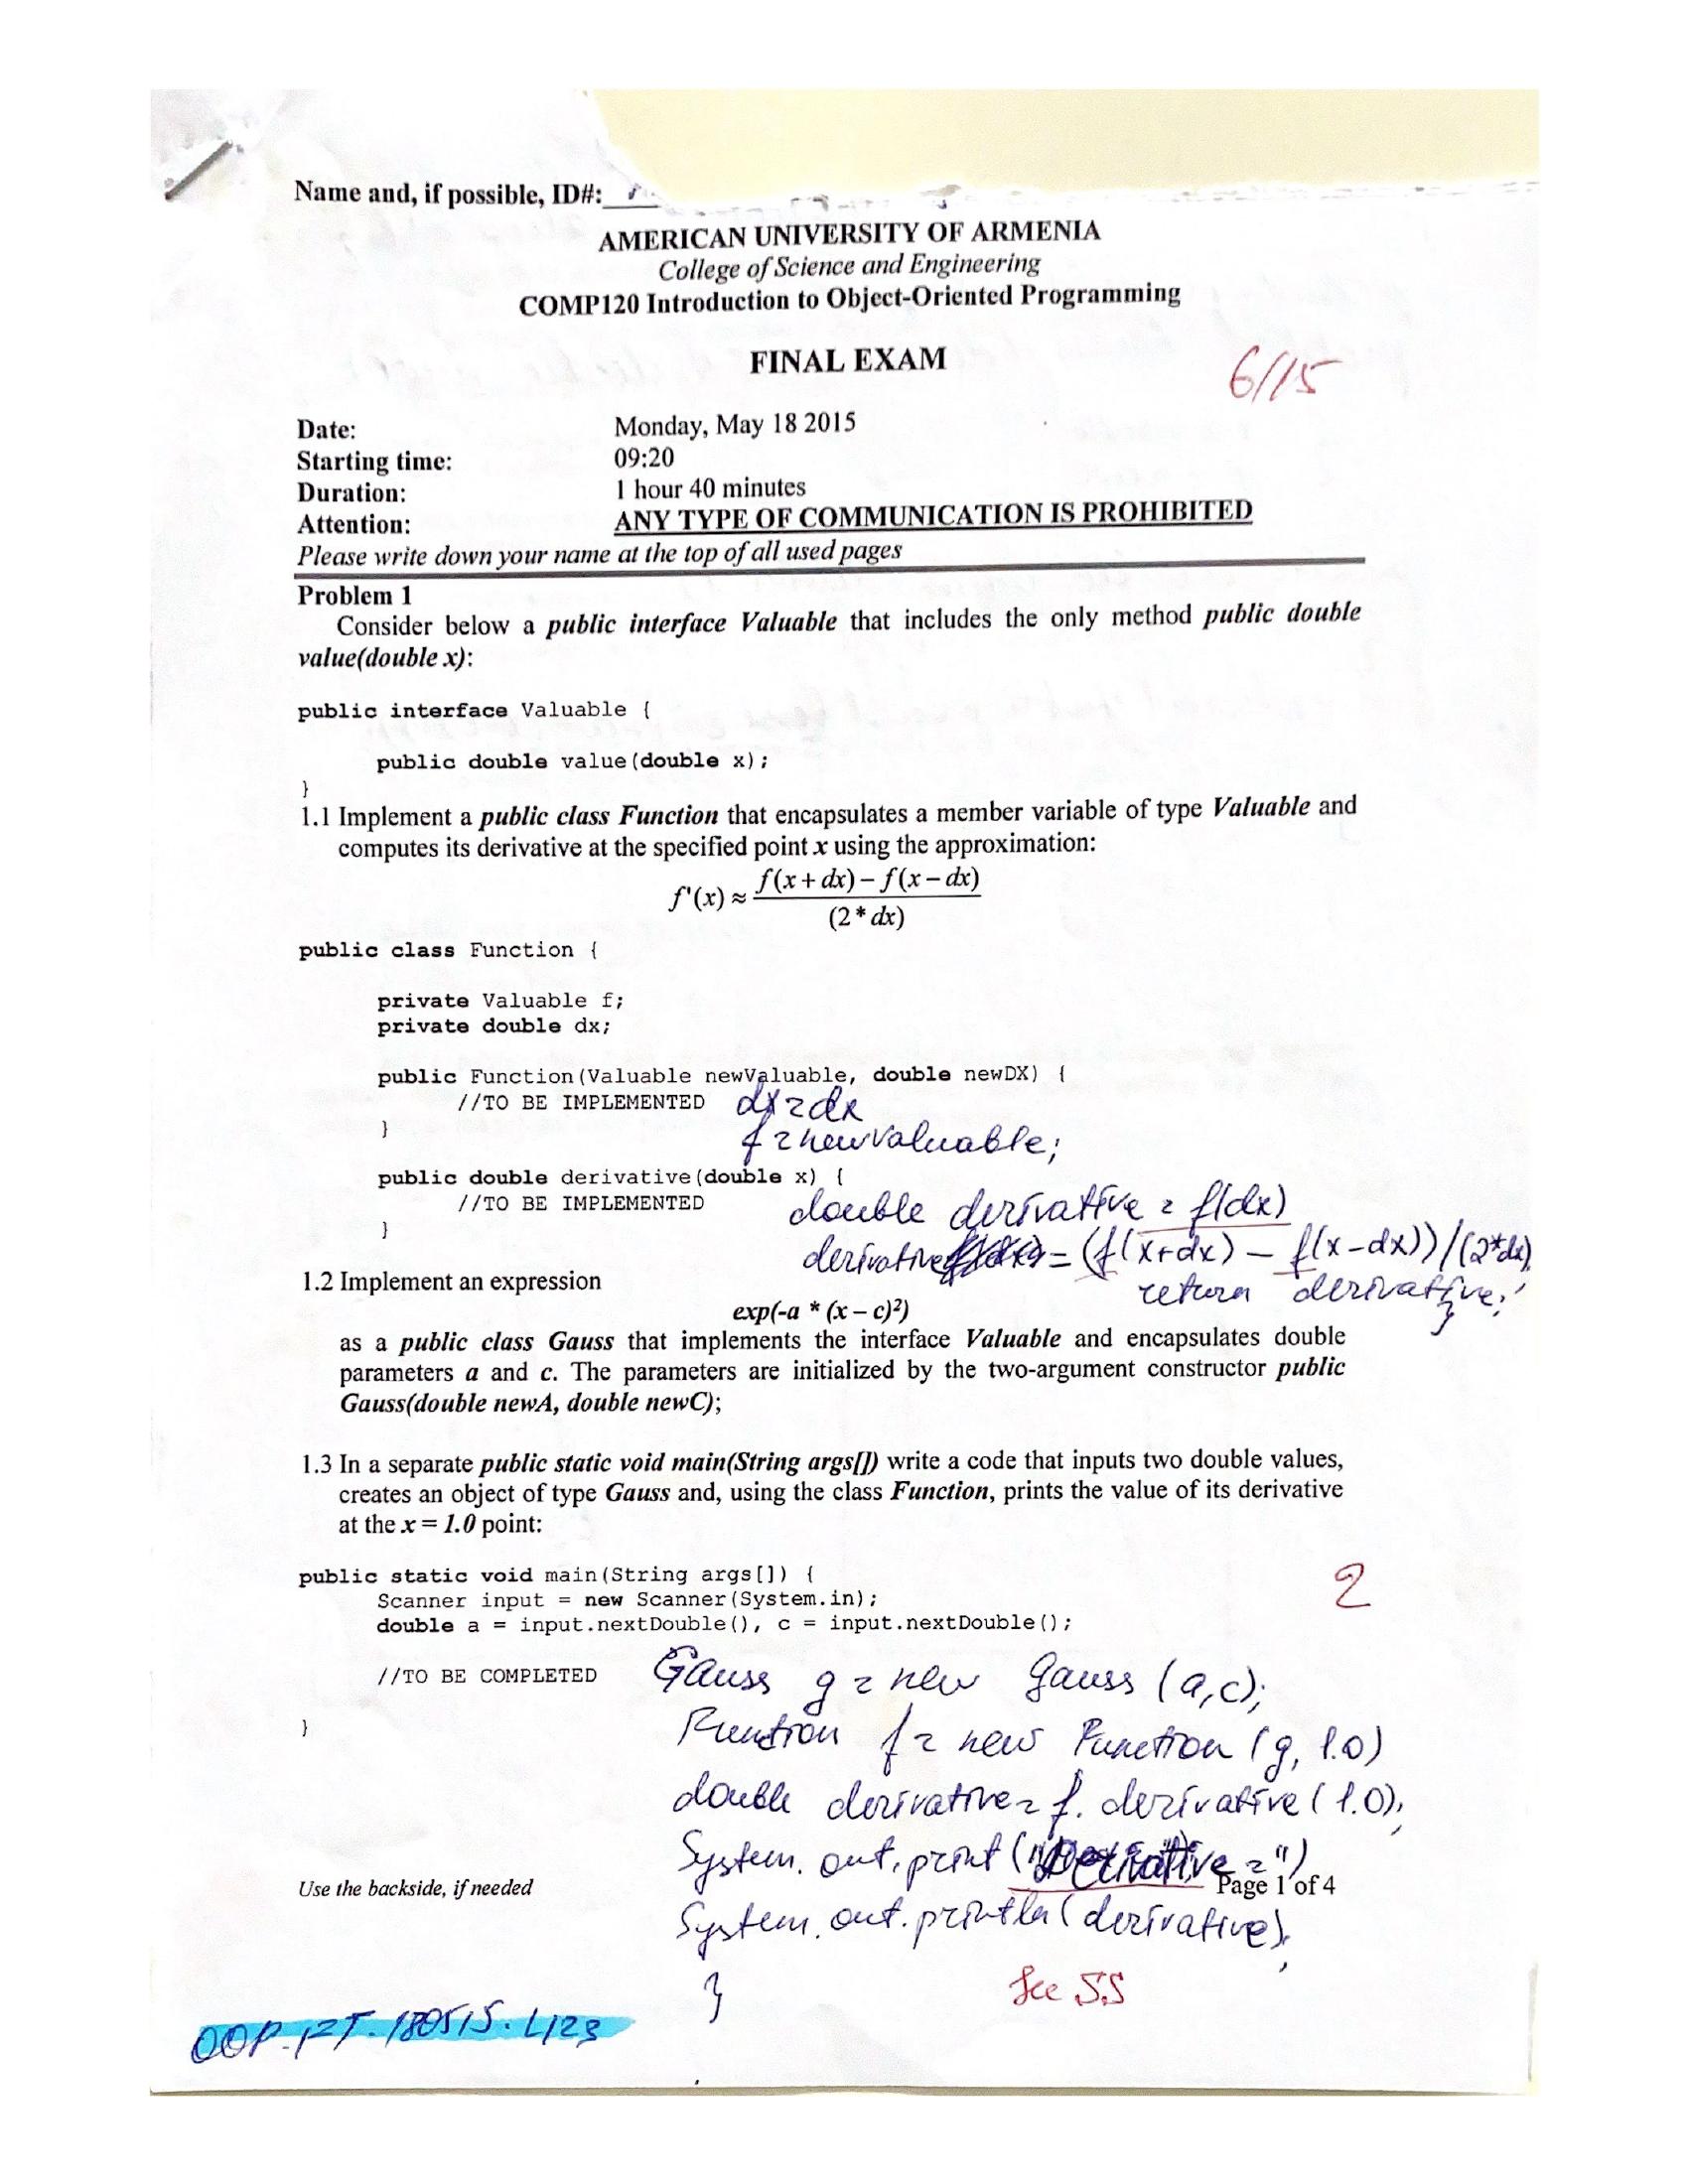 Name and, if possible, ID#:
AMERICAN UNIVERSITY OF ARMENIA
College of Science and Engineering
COMP120 Introduction to Object-Oriented Programming
FINAL EXAM
6/15
Date: Monday, May 18 2015
Starting time: 09:20
Duration: 1 hour 40 minutes
Attention: ANY TYPE OF COMMUNICATION IS PROHIBITED
Please write down your name at the top of all used pages
Problem 1
Consider below a public interface Valuable that includes the only method public double
value(double x):
public interface Valuable {
public double value(double x);
}
1.1 Implement a public class Function that encapsulates a member variable of type Valuable and
computes its derivative at the specified point x using the approximation:
f'(x) ≈ f(x + dx) – f(x – dx)
(2 * dx)
public class Function {
private Valuable f;
private double dx;
public Function(Valuable newValuable, double newDX) {
//TO BE IMPLEMENTED dx = dx
} f = newValuable;
public double derivative(double x) {
//TO BE IMPLEMENTED double derivative = f(dx)
} derivative = (f(x+dx) – f(x-dx))/(2*dx)
1.2 Implement an expression return derivative;
exp(-a * (x – c)²) }
as a public class Gauss that implements the interface Valuable and encapsulates double
parameters a and c. The parameters are initialized by the two-argument constructor public
Gauss(double newA, double newC);
1.3 In a separate public static void main(String args[]) write a code that inputs two double values,
creates an object of type Gauss and, using the class Function, prints the value of its derivative
at the x = 1.0 point:
public static void main(String args[]) {
2
Scanner input = new Scanner(System.in);
double a = input.nextDouble(), c = input.nextDouble();
//TO BE COMPLETED Gauss g = new Gauss (a,c);
} Function f = new Function (g, 1.0)
double derivative = f. derivative (1.0);
System. out. print ("Derivative = ")
Use the backside, if needed Page 1 of 4
System. out. println (derivative);
}
See 5.5
OOP.FT.180515.L123